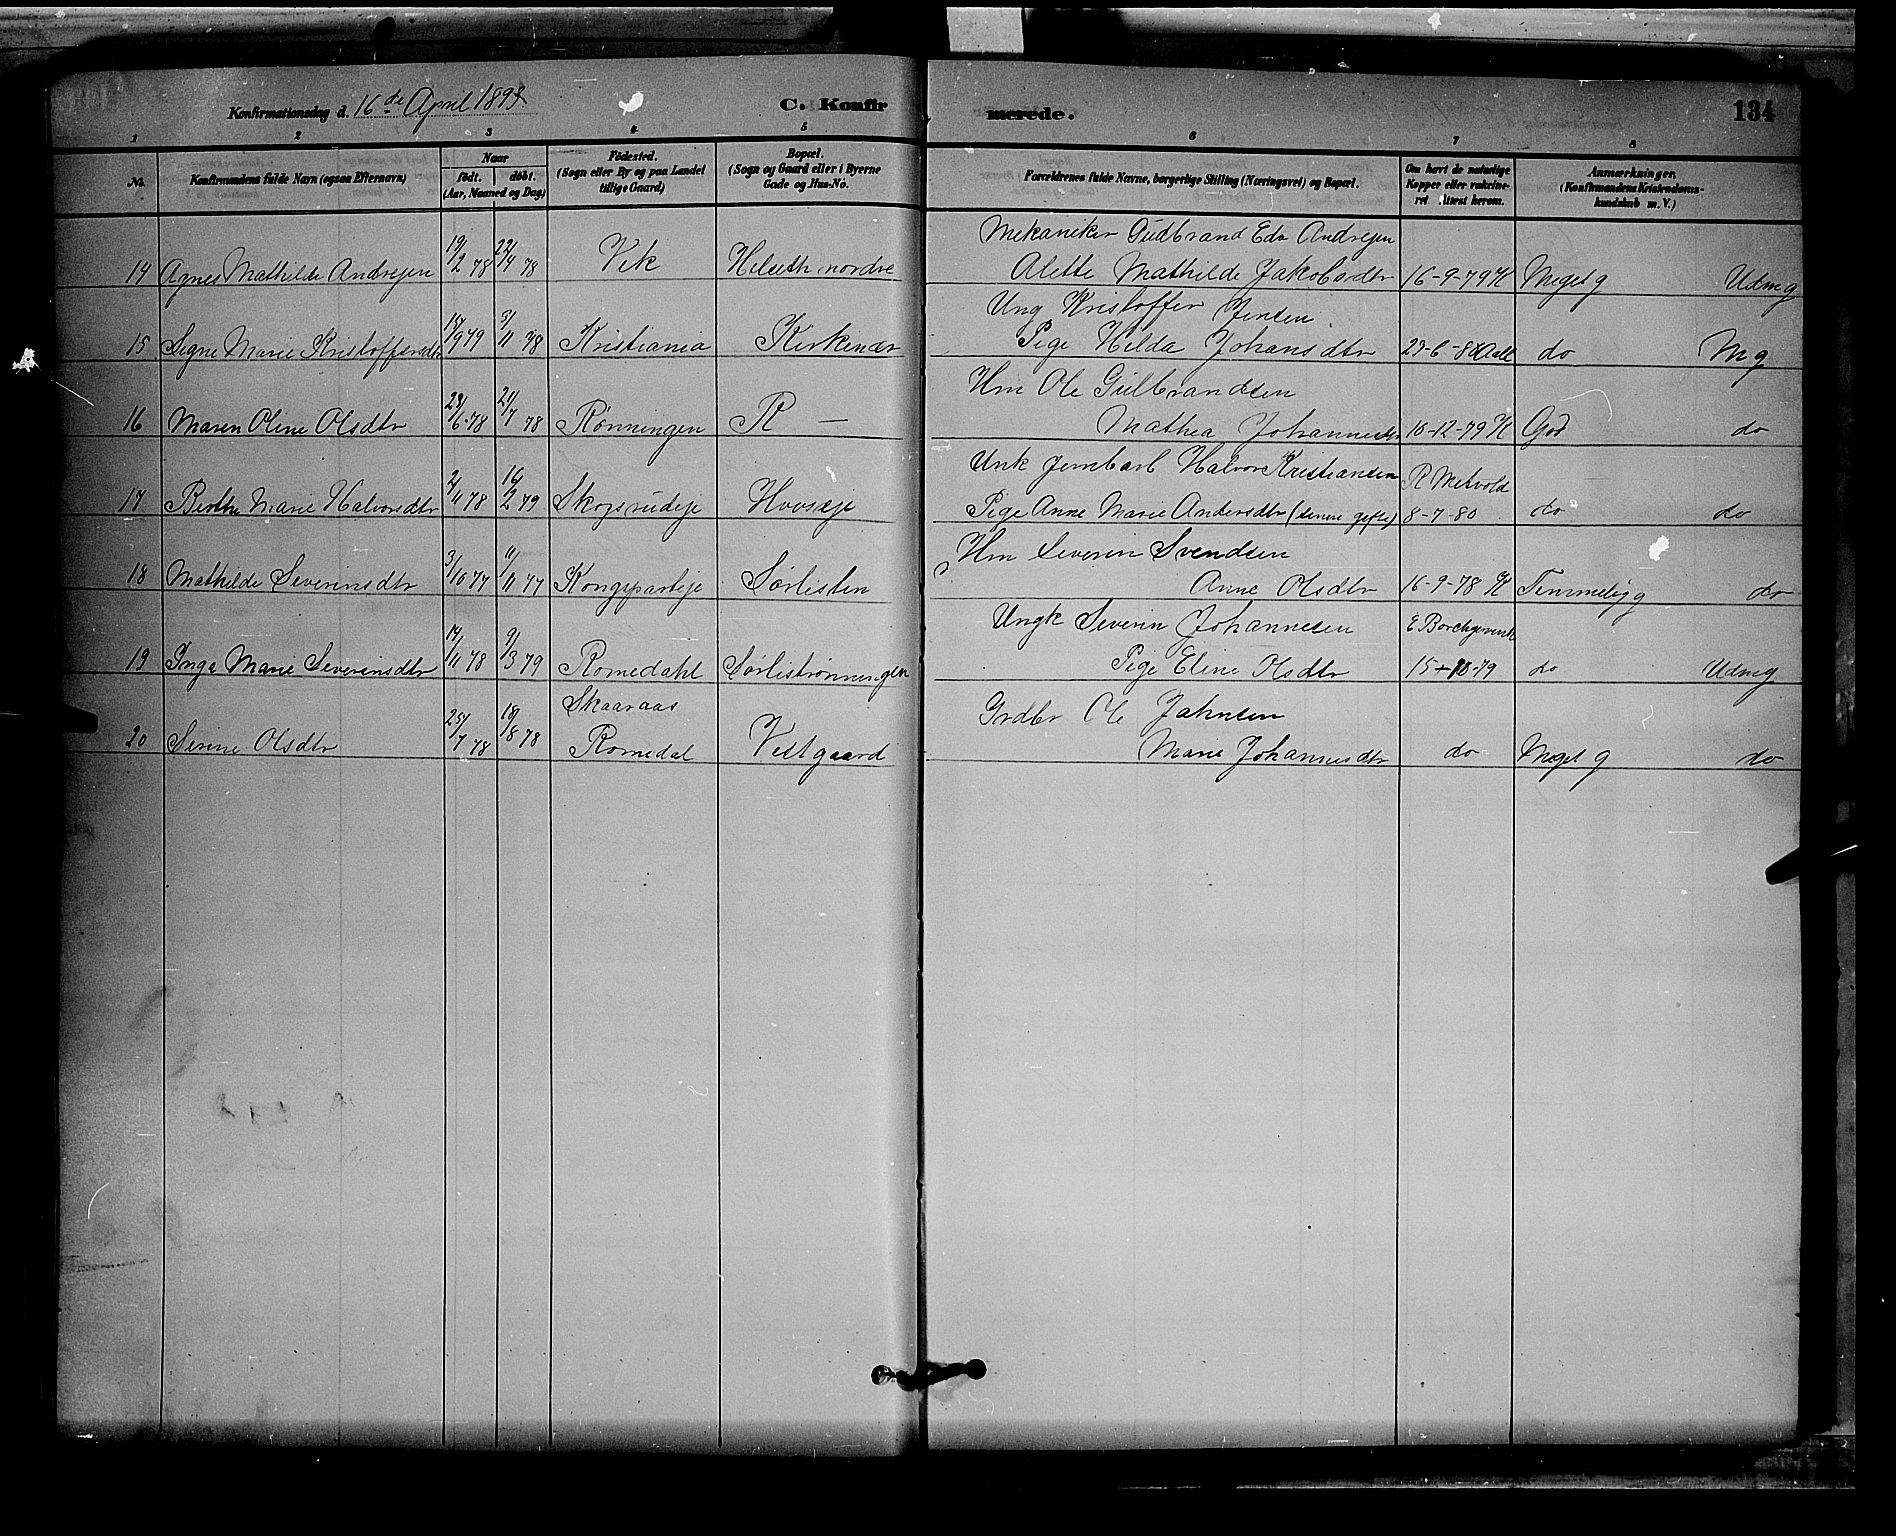 Konfirmationsdag d. 16de April 1893
C. Konfirmerede.
134
1 2 3 4 5 6 7 8
No. Konfirmandens fulde Navn (ogsaa Efternavn) Naar født. døbt. (Aar, Maaned og Dag) Fødested. (Sogn eller By og paa Landet tillige Gaard) Bopæl. (Sogn og Gaard eller i Byerne Gade og Hus-No. Forældrenes fulde Navne, borgerlige Stilling (Næringsvei) og Bopæl. Om havt de naturlige Kopper eller vakcineret. Attest herom. Anmærkninger. (Konfirmandens Kristendomskundskab m. V.)
Mekaniker Gudbrand Edv Andresen
14 Agnes Mathilde Andresen 19/2 78 22/4 78 Vik Helseth nordre Alette Mathilde Jakobsdtr 16-9-79 K Meget g Udm g
Ung Kristoffer Jensen
15 Signe Marie Kristoffersdtr 9 79 3/11 78 Kristiania Kirkenær Pige Hilda Johansdtr 29-6-8 Aall do M g
Hm Ole Gulbrandsen
16 Maren Oline Olsdtr 28/6-78 21/7 78 Rønningen R — Mathea Johannesdtr 10-12-79 K God do
Unk Jernbarb Halvor Kristiansen R Metvold
17 Berthe Marie Halvorsdtr 2/11 78 16/2 79 Skogsrudeje Hovseje Pige Anne Marie Andersdtr (senere gifte) 8-7-80 do do
Hm Severin Svendsen
18 Mathilde Severinsdtr 3/10 77 11/11 77 Kongsparteje Sørlisten Anne Olsdtr 16-9-78 K Temmelig g do
Ungk Severin Johannesen E Borchgrevink
19 Inga Marie Severinsdtr 14/11 78 9/3 79 Romedahl Sørlistrønningen Pige Eline Olsdtr 15-10-79 do Udm g
Skaaraas Grdbr Ole Jahnsen
20 Serine Olsdtr 25/7 78 18/8 78 Romedal Vestgaard Marie Johannesdtr do Meget g do